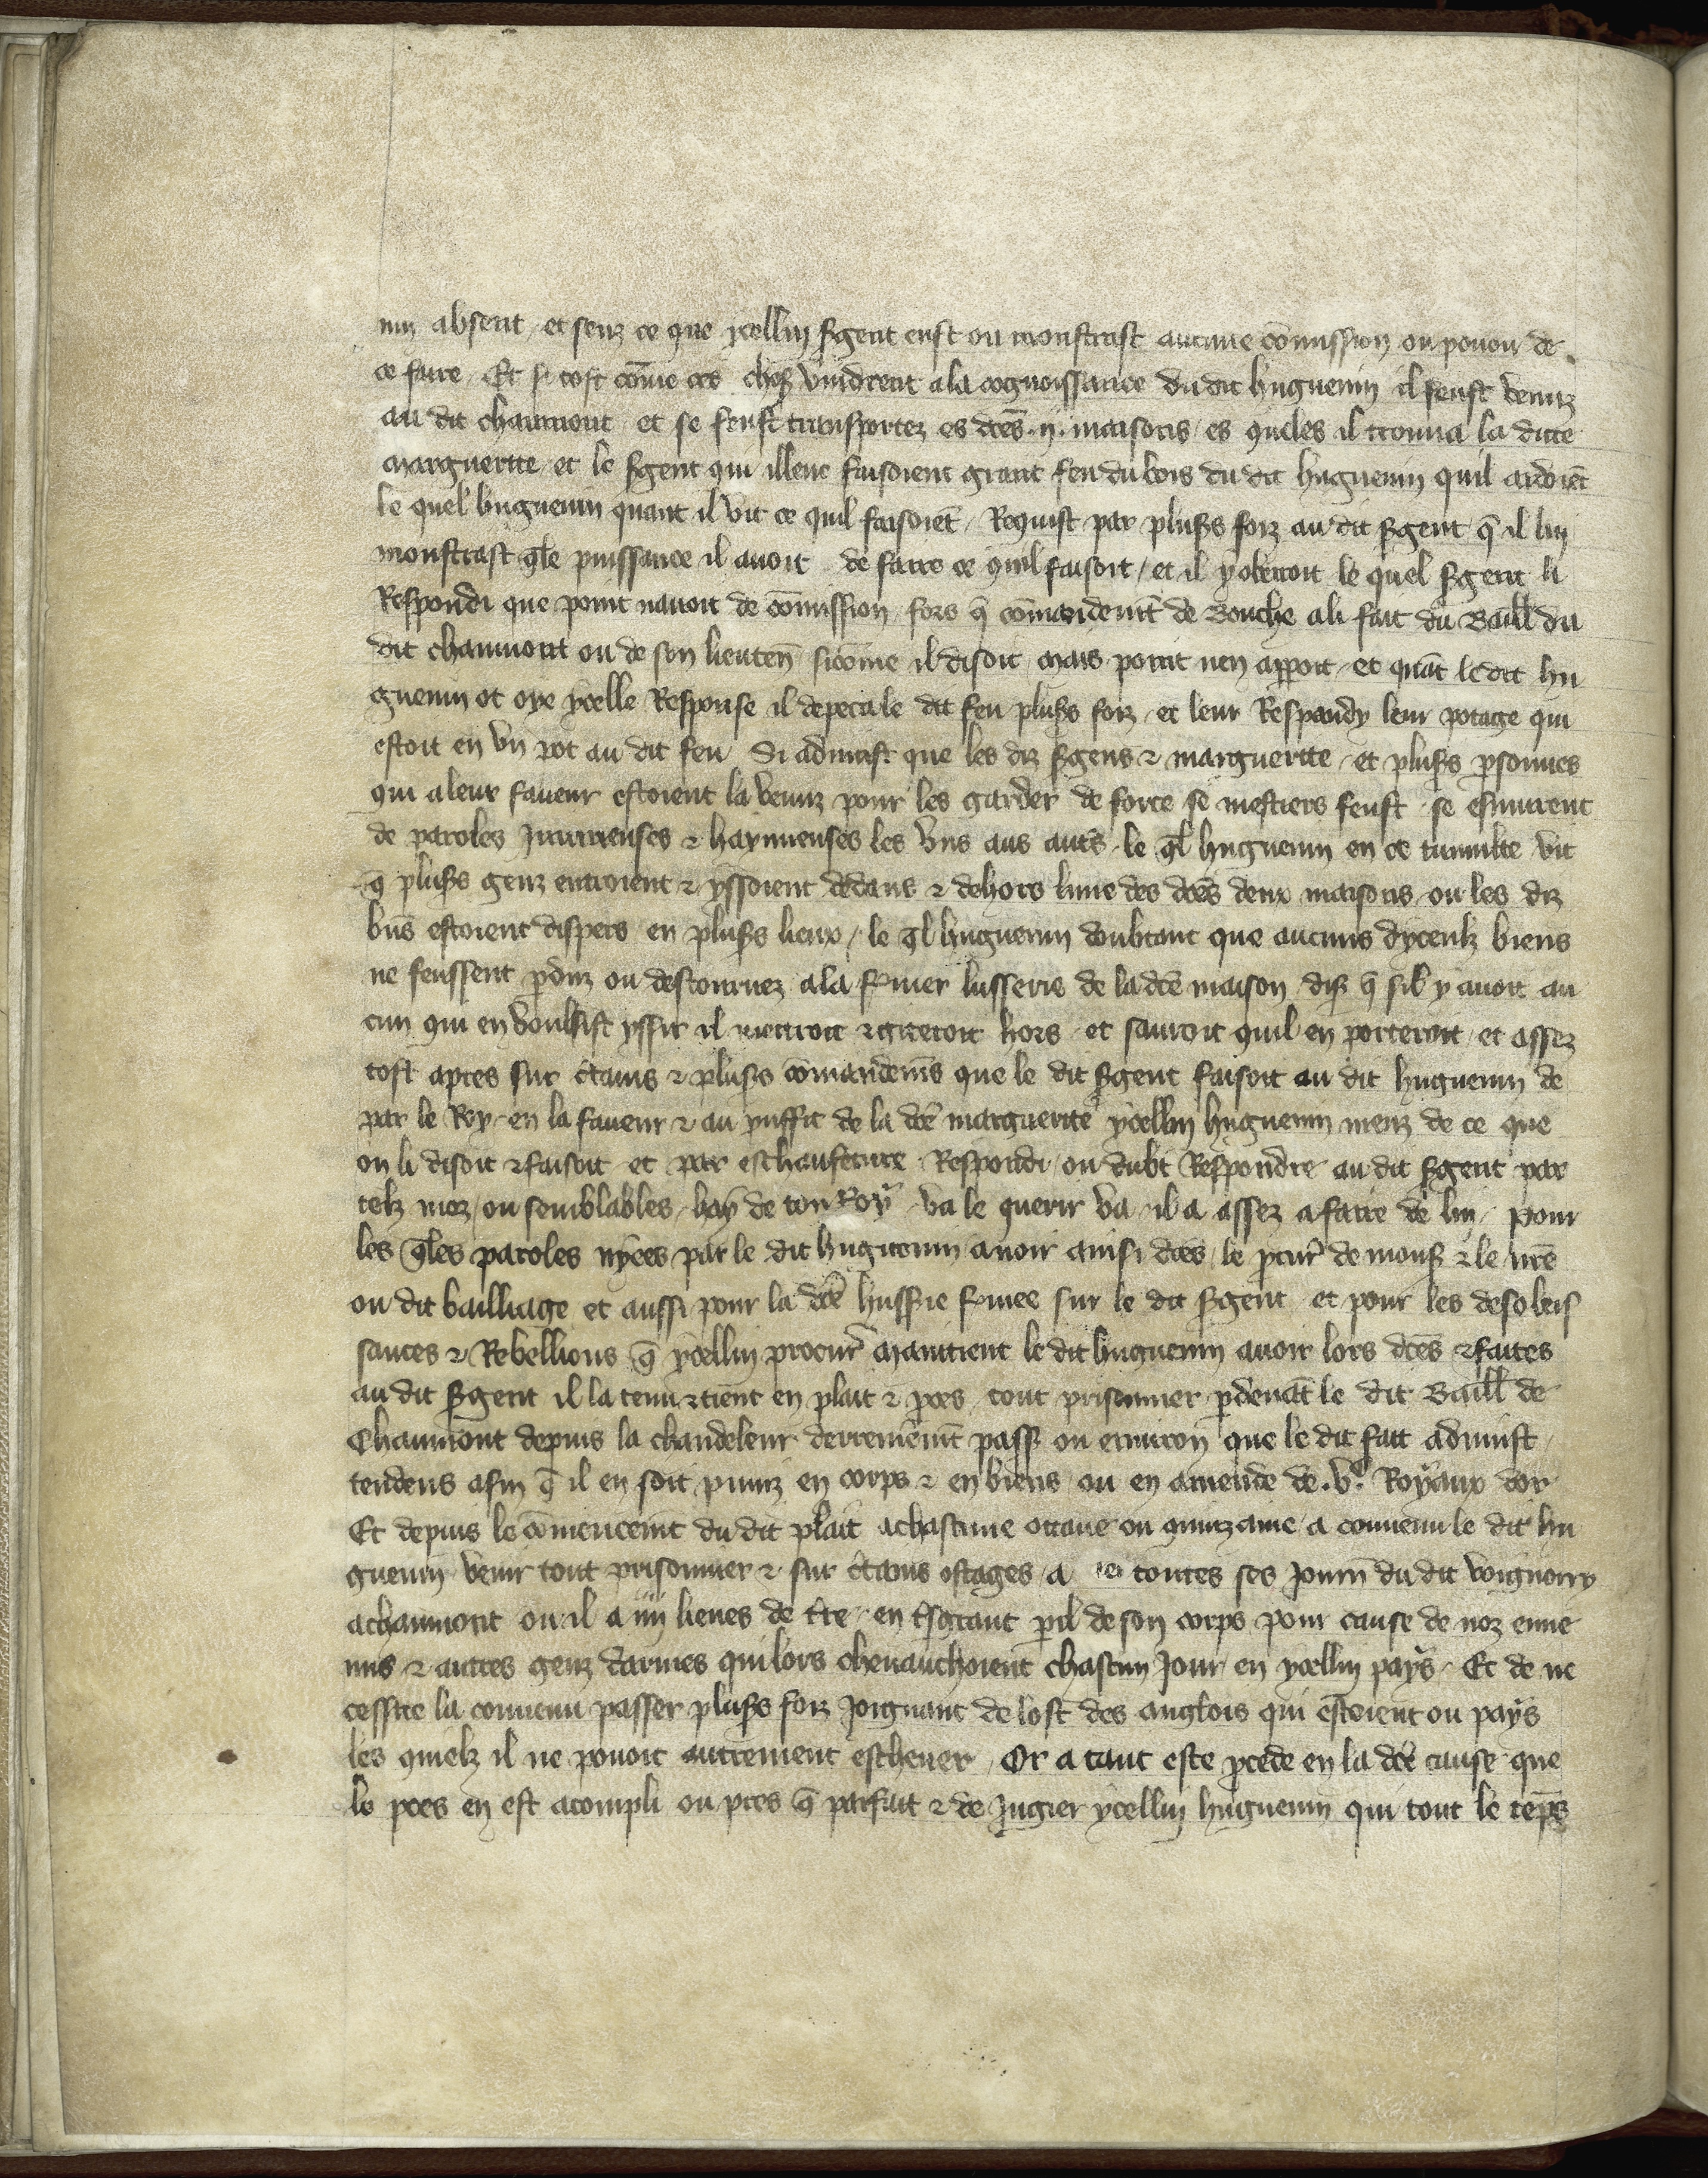 nin absent / et senz ce que ycellui sgent eust ou monstrast aucune cõmission ou pouoir de
ce faire / Et si tost cõme ces choses vindrent a la cognoissance du dit huguenin il feust venuz
au dit chaumont et se feust transportez es dces .ij. maisons / es queles il trouua la dicte
marguerite / et le sgent qui illeuc faisoient grant feu du bois du dit huguenin quil ardoiēt
le quel huguenin quant il vit ce quil faisoiēt / Requist par plus̃s foiz au dit sgent q̃ il lui
monstrast qle puissance il auoit de faire ce quil faisoit / et il y obeiroit le quel sgent li
Respondi que point nauoit de cõmission / fors q̃ cõmandemt de Bouche a li fait du Baill du
dit chaumont ou de son lieuten̄ sicõme il disoit mais point nen apparoit / et quãt le dit hu
guenin ot oye ycelle Response il depeca le dit feu plus̃s foiz / et leur Respandy leur potage qui
estoit en vn pot au dit feu / Si aduint que les diz sgens & marguerite / et plus̃s psonnes
qui a leur faueur estoient la venuz pour les garder de force se mestiers feust / se esmurent
de paroles Iniurieuses & haynneuses les vns aus aut̃s / le ql huguenin en ce tumulte vit
q̃ plus̃s genz entroient & yssoient dedans & dehors lune des dces deux maisons / ou les diz
biẽs estoient dispers en plus̃s lieux / le ql huguenin doubtant que aucuns dyceulz biens
ne feussent pduz ou destournez ala fmer lusserie de la dce maison dis̃ q̃ sil y auoit au
cun qui en voulsist yssir il mettroit & gitteroit hors / et sauroit quil en porteroit / et assez
tost apres sur ctains & plus̃s cõmandemẽs que le dit sgent faisoit au dit huguenin de
par le Roy / en la faueur & au prffit de la dce marguerite ycellui huguenin meuz de ce que
on li disoit & faisoit et par eschaufeture Respondi / ou dubt Respondre au dit sgent par
telz moz / ou semblables / hay de ton Roy va le querir va / il a assez a faire de lui / Pour
les qles paroles nyees par le dit huguenin auoir ainsi dces / le pcur̃ de mons̃ & le nr̃e
ou dit bailliage et aussi pour la dce husserie fmee sur le dit sgent et pour les desobeis
sances & Rebellions q̃ ycellui procur̃ maintient le dit huguenin auoir lors dces & faites
au dit sgent il la tenu & tient en plait & pces / tout prisonnier pdeuãt le dit Baill de
Chaumont depuis la chandeleur derrenẽmt pass̃ ou enuiron que le dit fait aduint /
tendens afin q̃ il en soit puniz en corps & en biens / ou en amende de .vc. Royaux dor
Et depuis le cõmencemt du dit plait a chascune ottaue ou quinzaine / a conuenu le dit hu
guenin venir tout prisonnier & sur ctains ostages / a toutes ses journ̄ du dit voignorry
a chaumont ou il a iiij lieues de tre / en t̃sgrant pil de son corps pour cause de noz enne
mis & autres genz darmes qui lors cheuauchoient chascun Jour en ycellui pays / Et de ne
cessite la conuenu passer plus̃s foiz Joignant de lost des anglois qui estoient ou pays
les quielz il ne pouoit autrement escheuer / Or a tant este pcede en la dce cause que
le pces en est acompli ou pres q̃ parfait & de Jugier ycellui huguenin qui tout le tẽps